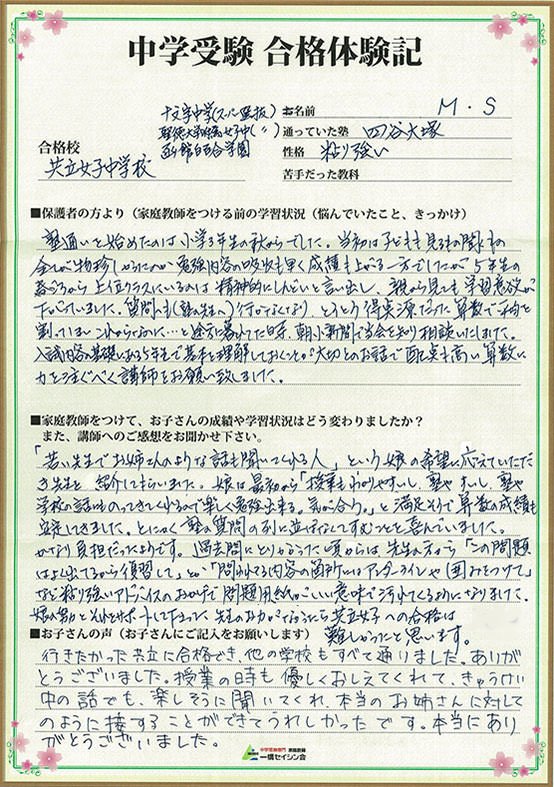 中学受験 合格体験記
十文字中学(スーパー選抜)
お名前 M・S
聖徳大学附属女子中(〃)
通っていた塾 四谷大塚
函館白百合学園
合格校
共立女子中学校
性格 粘り強い
苦手だった教科
■保護者の方より(家庭教師をつける前の学習状況(悩んでいたこと、きっかけ)
塾通いを始めたのは小学3年生の秋からでした。当初は子どもも見るもの聞くもの
全てが物珍しかったのか勉強内容の吸収も早く成績も上がる一方でしたが5年生の
春ごろから上位クラスにいるのは精神的にしんどいと言い出し、親から見ても学習意欲が
下がっていました。質問にも(塾の先生へ)行かなくなり、とうとう得点源だった算数で平均を
割ってしまいこれからなのに…と途方に暮れてた時、朝小新聞で当会を知り相談いたしました。
入試内容の基礎にある5年生で基本を理解しておくことが大切とのお話で配点も高い算数に
力を注ぐべく講師をお願い致しました。
■家庭教師をつけて、お子さんの成績や学習状況はどう変わりましたか?
また、講師へのご感想をお聞かせ下さい。
「若い先生でお姉さんのような話も聞いてくれる人」という娘の希望に応えていただ
き先生を紹介してもらいました。娘は最初から「授業もわかりやすいし、塾や
学校の話にものってきてくれるので楽しく勉強出来る。気が合う。」と満足そうで算数の成績も
安定してきました。とにかく塾の質問の列に並ばなくてすむことを喜んでいました。
かなり負担だったようです。過去問にとりかかった頃からは先生の方から「この問題
はよく出てるから復習して」とか「問われてる内容の箇所にはアンダーラインや囲みをつけて」
など粘り強いアドバイスのおかげで問題用紙がいい意味で汚れてくるようになりました。
娘の努力とそれをサポートして下さった先生のお力がなかったら共立女子への合格は
難しかったと思います。
■お子さんの声(お子さんにご記入をお願いします)
行きたかった共立に合格でき、他の学校もすべて通りました。ありが
とうございました。授業の時も優しくおしえてくれて、きゅうけい
中の話でも、楽しそうに聞いてくれ、本当のお姉さんに対して
のように接することができてうれしかったです。本当にあり
がとうございました。
中学受験専門 家庭教師
一橋セイシン会